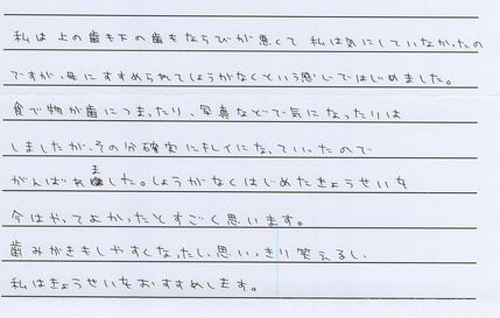 私は上の歯も下の歯もならびが悪くて 私は気にしていなかったの
ですが、母にすすめられてしょうがなくという感じではじめました。
食べ物が歯につまったり、写真などで気になったりは
しましたが、その分確実にキレイになっていったので
がんばれました。しょうがなくはじめたきょうせいを
今はやってよかったとすごく思います。
歯みがきもしやすくなったし、思いっきり笑えるし、
私はきょうせいをおすすめします。